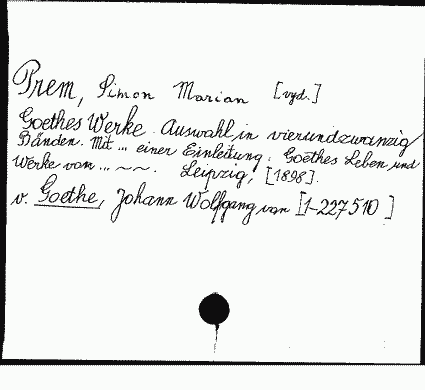 Prem, Simon Marian [vyd.]
Goethes Werke. Auswahl in vierundzwanzig
Bänden. Mit ... einer Einleitung: Goethes Leben und
Werke von ... ~~. Leipzig, [1898].
v. Goethe, Johann Wolfgang von [1-227510]